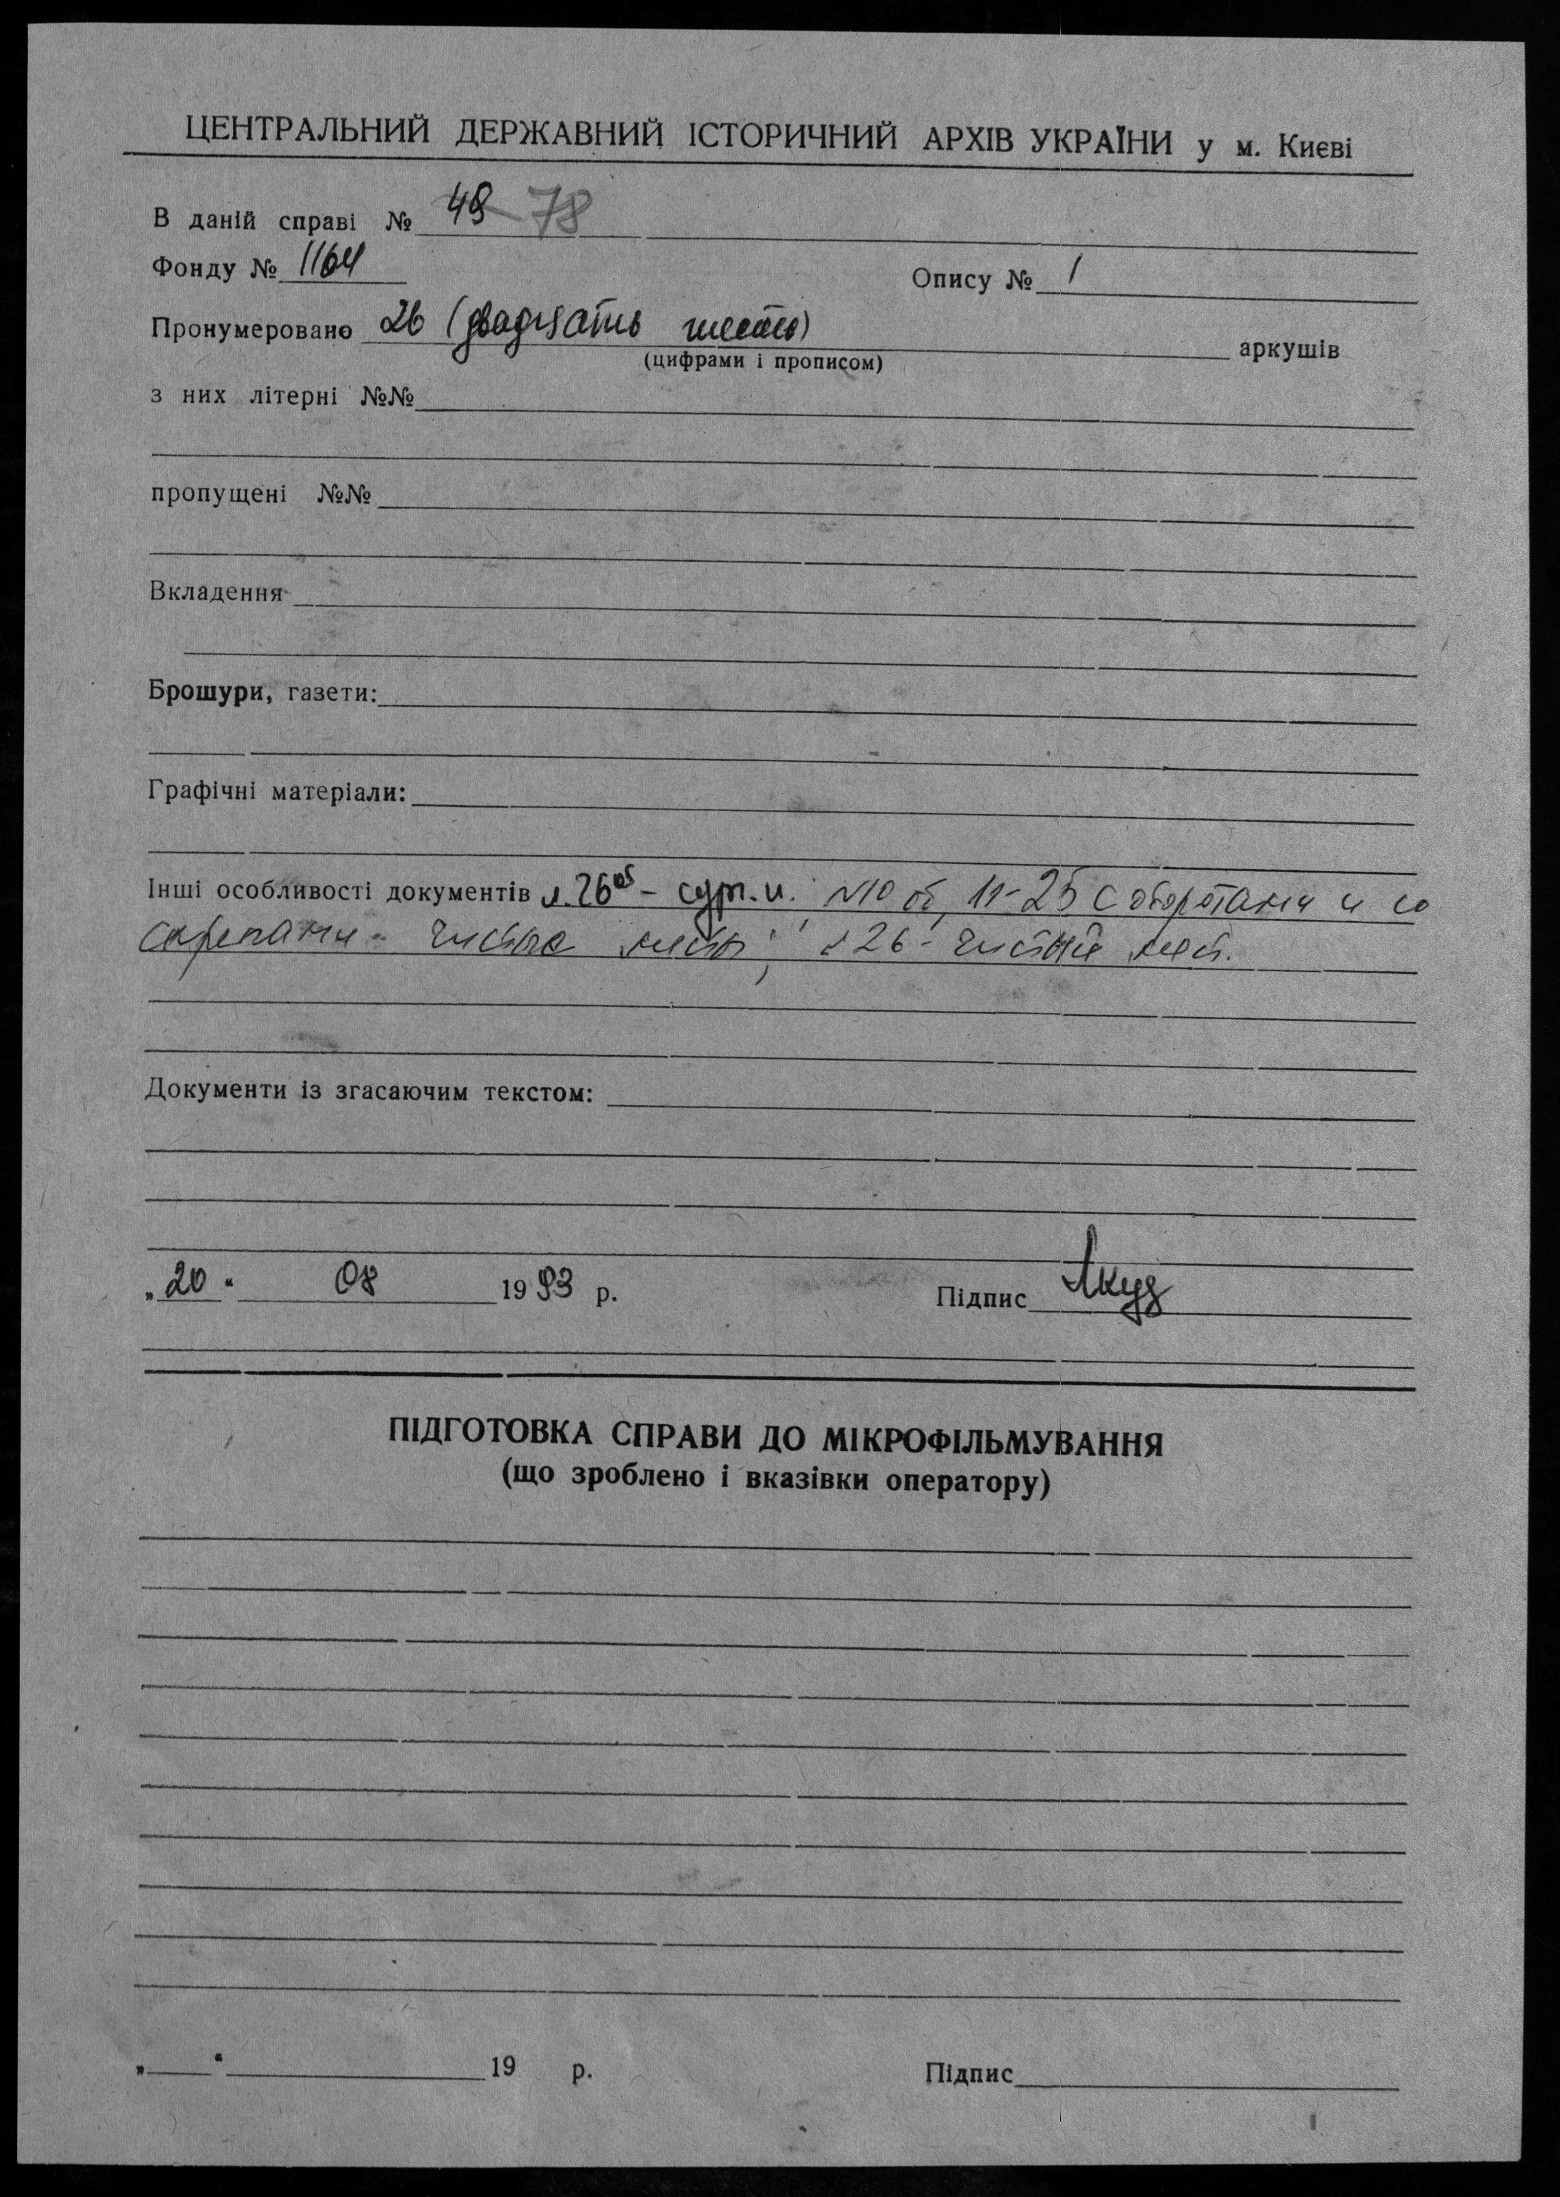 ЦЕНТРАЛЬНИЙ ДЕРЖАВНИЙ ІСТОРИЧНИЙ АРХІВ УКРАЇНИ у м. Києві
В даній справі № 49 78
Фонду № 1164 Опису № 1
Пронумеровано 26 (двадцать шесть) аркушів
(цифрами і прописом)
з них літерні №№
пропущені №№
Вкладення
Брошури, газети:
Графічні матеріали:
Інші особливості документів л. 26об – сург. п. 10 об, 11-25 с оборотами и со
скрепами - чистые листы; л 26 - чистый лист.
Документи із згасаючим текстом:
„20“ 08 1993 р. Підпис
ПІДГОТОВКА СПРАВИ ДО МІКРОФІЛЬМУВАННЯ
(що зроблено і вказівки оператору)
„ “ 19 р. Підпис